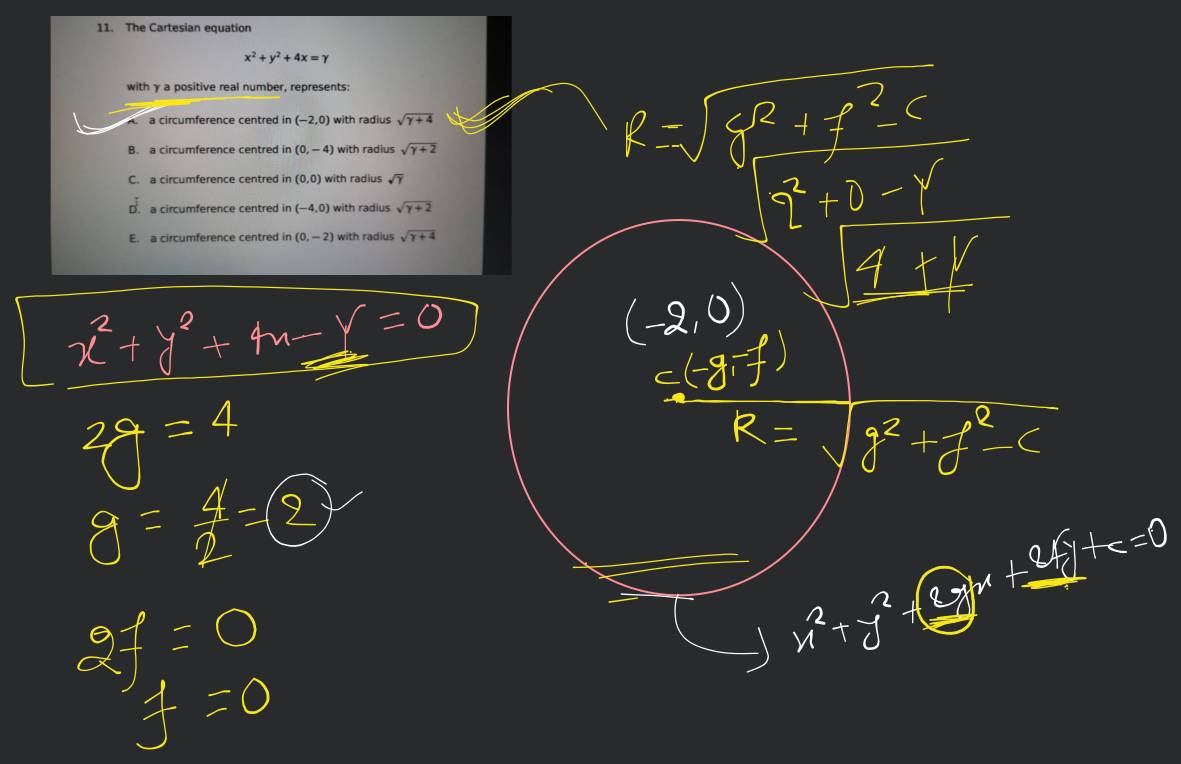 11. The Cartesian equation
x² + y² + 4x = γ
with γ a positive real number, represents:
A. a circumference centred in (−2,0) with radius √γ+4
B. a circumference centred in (0, − 4) with radius √γ+2
C. a circumference centred in (0,0) with radius √γ
D. a circumference centred in (−4,0) with radius √γ+2
E. a circumference centred in (0, − 2) with radius √γ+4
R = √g² + f² - c
√2² + 0 - γ
√4 + γ
x² + y² + 4x - γ = 0
2g = 4
g = 4/2 = 2
2f = 0
f = 0
(-2,0)
c(-g,-f)
R = √g² + f² - c
x² + y² + 2gx + 2fy + c = 0